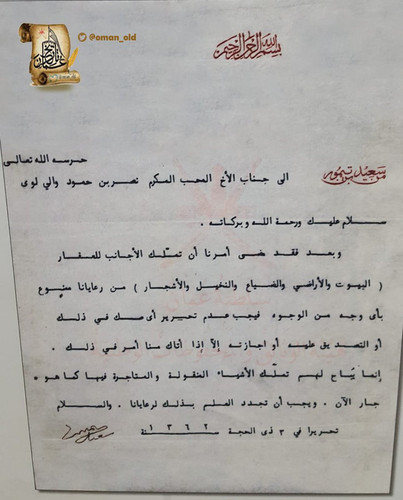 @oman_old
بسم الله الرحمن الرحيم
حرسه الله تعالى
من سعيد بن تيمور
الى جناب الأخ المحب المكرم نصر بن حمود والي لوى
سلام عليك ورحمة الله وبركاته .
وبعد فقد مضى أمرنا أن تملك الأجانب للعقار
( البيوت والأراضي والضياع والنخيل والأشجار ) من رعايانا ممنوع
بأى وجه من الوجوه فيجب عدم تحرير أى صك في ذلك
أو التصديق عليه أو اجازته إلا إذا أتاك منا أمر في ذلك .
إنما يباح لهم تملك الأشياء المنقولة والمتاجرة فيها كما هو
جار الآن . ويجب أن تجدد العلم بذلك لرعايانا . والسلام
تحريرا في ٣ ذى الحجة سنة ١٣٦٢